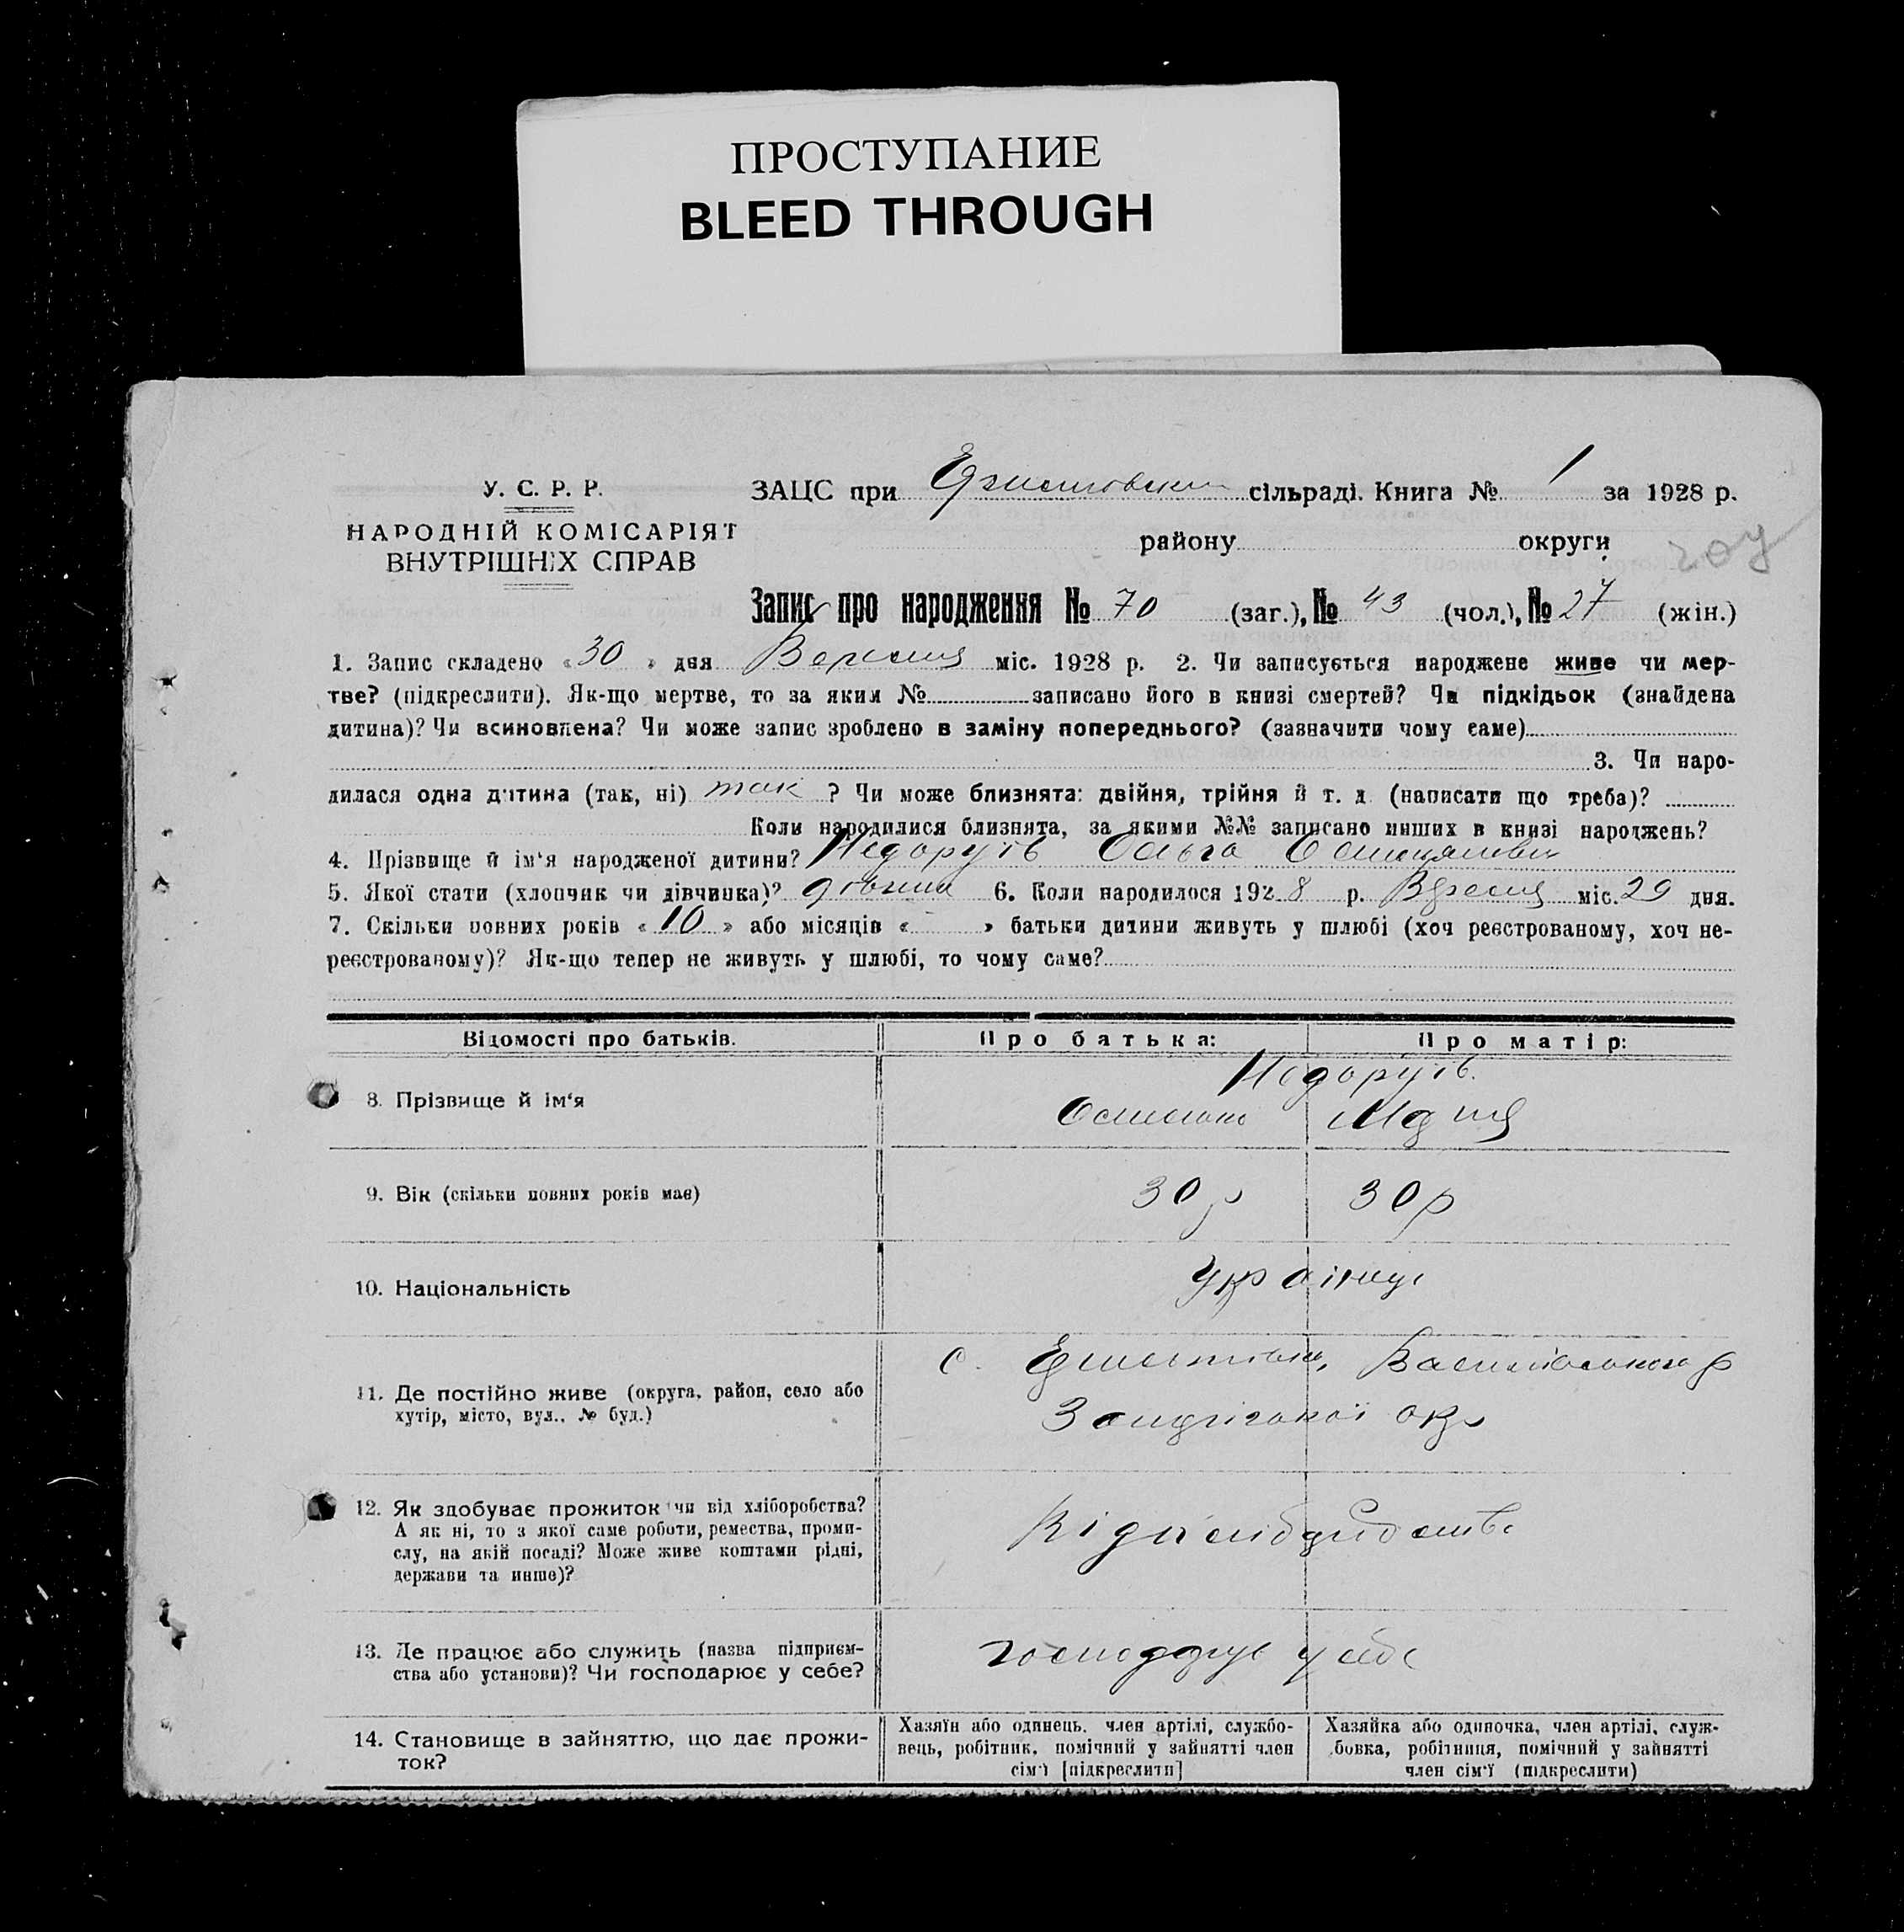 ПРОСТУПАНИЕ
BLEED THROUGH
У. С. Р. Р.
НАРОДНІЙ КОМІСАРІЯТ
ВНУТРІШНІХ СПРАВ
ЗАЦС при сільраді. Книга № 1 за 1928 р.
району округи
Запис про народження № 70 (заг.), № 43 (чол.), № 27 (жін.)
1. Запис складено « 30 » дня Вересня міс. 1928 р. 2. Чи записується народжене живе чи мер-
тве? (підкреслити). Як-що мертве, то за яким № записано його в книзі смертей? Чи підкідьок (знайдена
дитина)? Чи всиновлена? Чи може запис зроблено в заміну попереднього? (зазначити чому саме)
3. Чи наро-
дилася одна дитина (так, ні) так ? Чи може близнята: двійня, трійня й т. д. (написати що треба)?
Коли народилися близнята, за якими №№ записано инших в книзі народжень?
4. Прізвище й ім'я народженої дитини? Недоруїв Ольга
5. Якої стати (хлопчик чи дівчинка)? 6. Коли народилося 1928 р. Вересня міс. 29 дня.
7. Скільки повних років « 10 » або місяців « - » батьки дитини живуть у шлюбі (хоч реєстрованому, хоч не-
реєстрованому)? Як-що тепер не живуть у шлюбі, то чому саме?
Відомості про батьків. Про батька: Про матір:
Недоруїв.
8. Прізвище й ім'я
9. Вік (скільки повних років має) 30 р 30 р
10. Національність Українці
11. Де постійно живе (округа, район, село або
хутір, місто, вул., № буд.)
с. Василівського р
Запорізької окр
12. Як здобуває прожиток чи від хліборобства?
А як ні, то з якої саме роботи, ремества, проми-
слу, на якій посаді? Може живе коштами рідні,
держави та инше)?
Від хліборобства
13. Де працює або служить (назва підприєм-
ства або установи)? Чи господарює у себе?
господарює у себе
14. Становище в зайняттю, що дає прожи-
ток?
Хазяїн або одинець, член артілі, службо-
вець, робітник, помічний у зайнятті член
сім'ї [підкреслити]
Хазяйка або одиночка, член артілі, служ-
бовка, робітниця, помічний у зайнятті
член сім'ї (підкреслити)